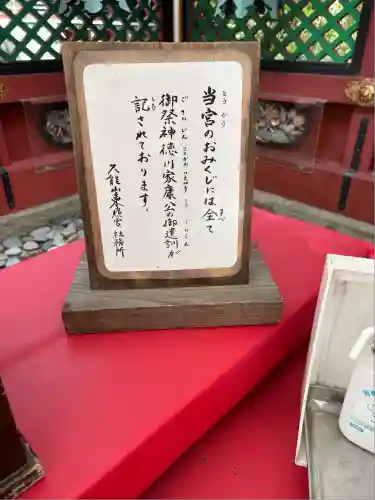 当宮のおみくじには全て
御祭神徳川家康公の御遺訓が
記されております。
久能山東照宮 社務所